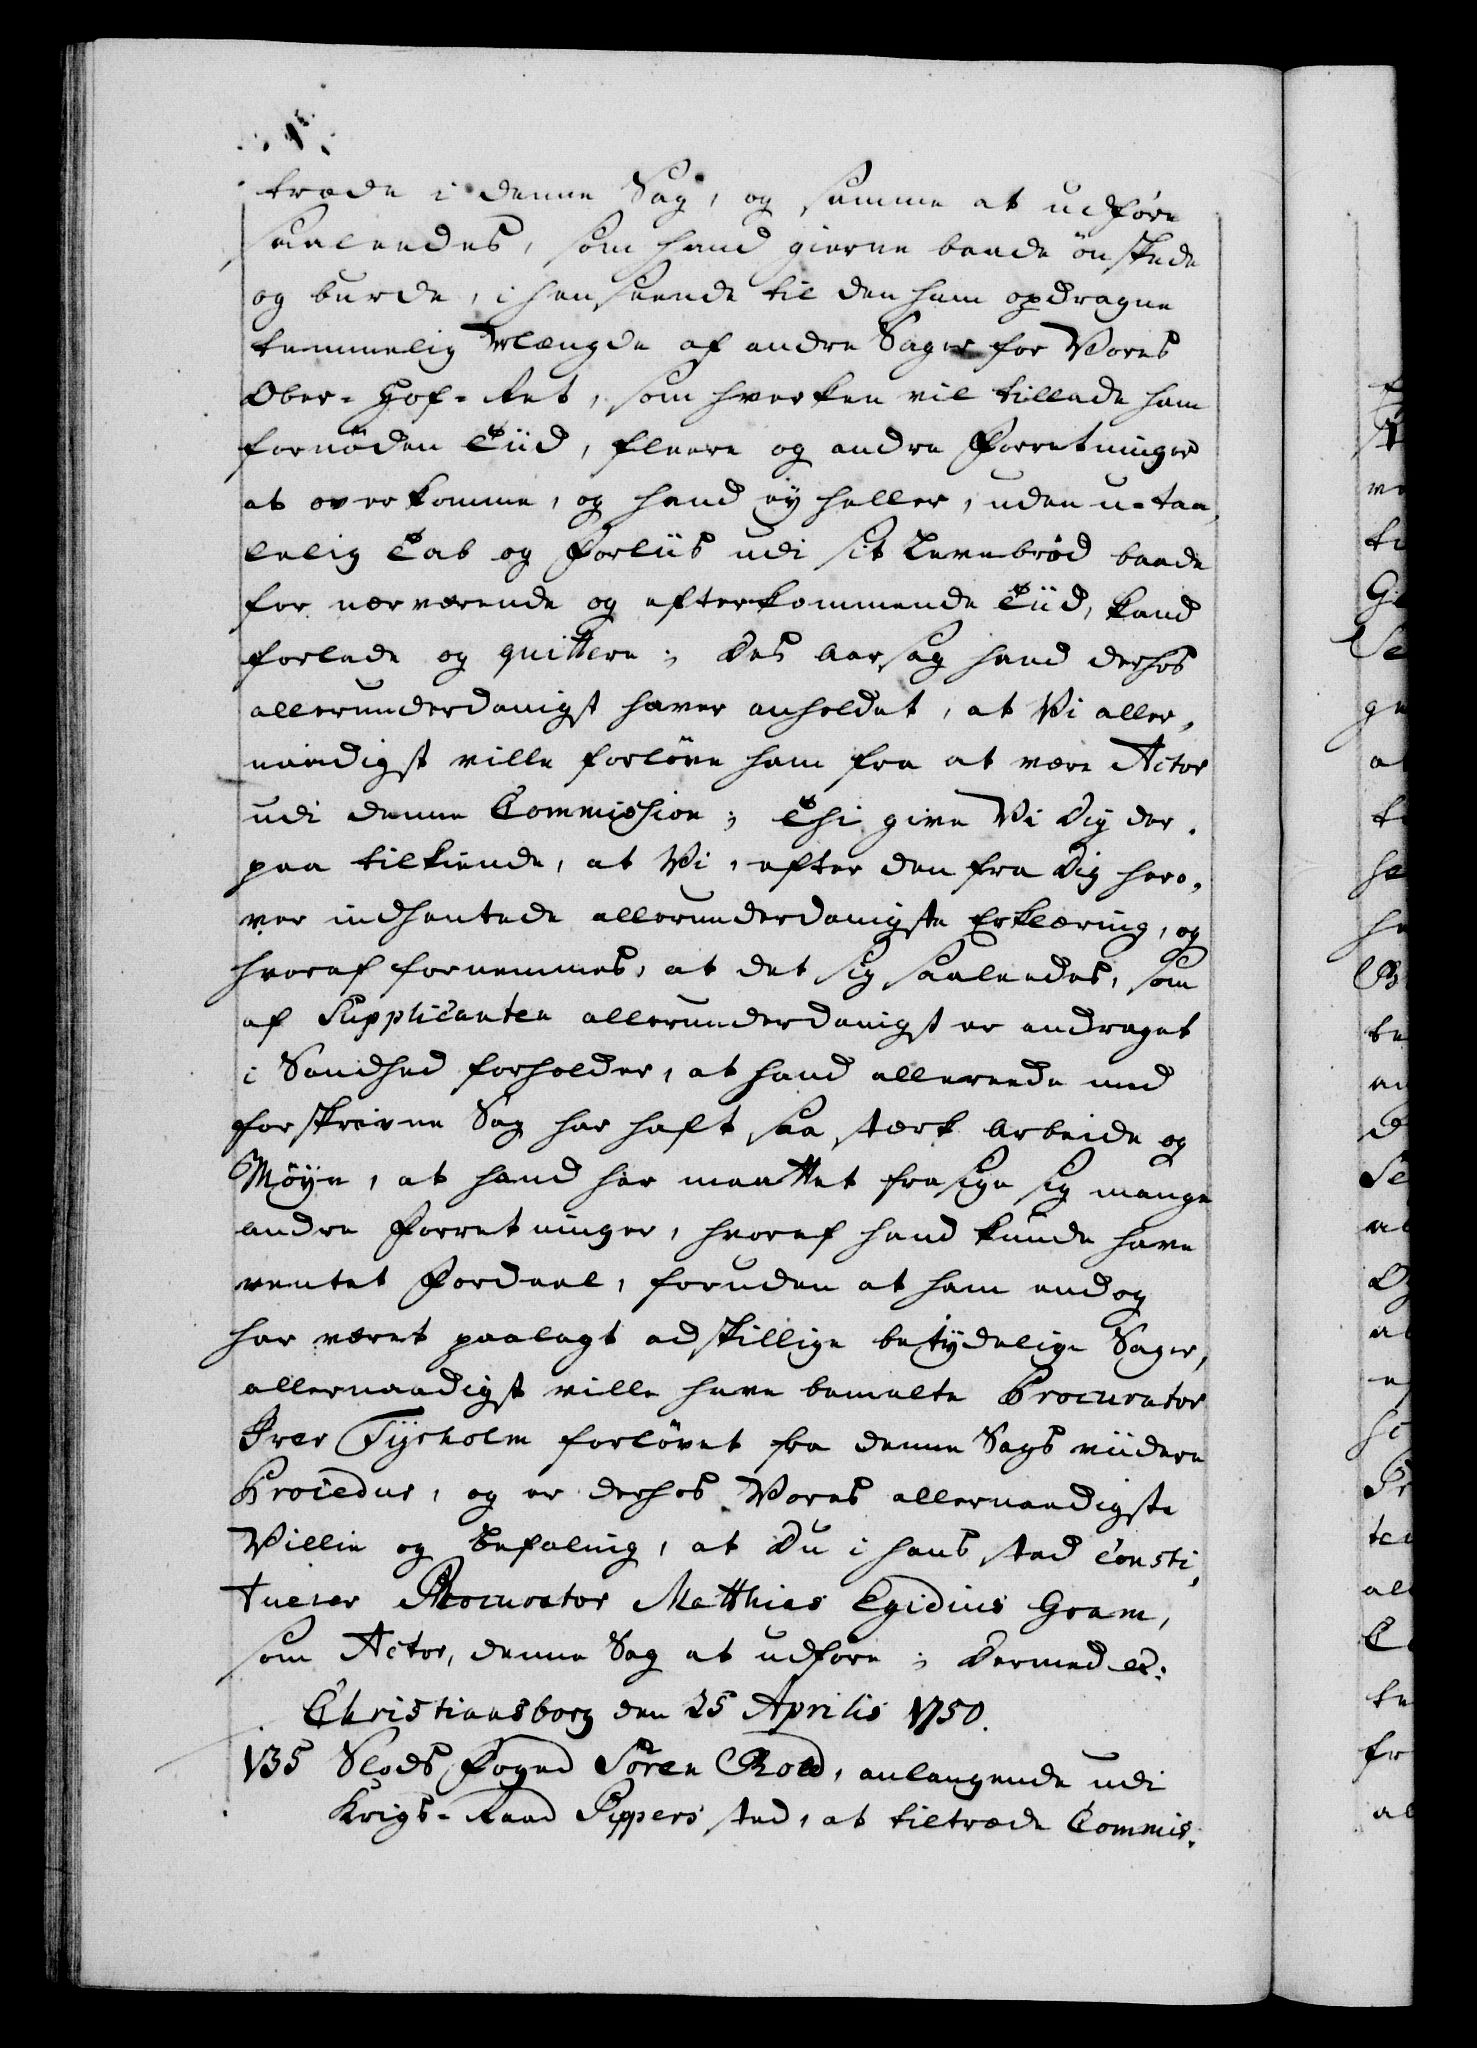 træde i denne Sag, og samme at udføre
saaleedes, som hand gierne baade ønskede
og burde, i henseende til den ham opdragne
temmelig Mængde af andre Sager for Vores
Ober-Hof-Ret, som hverken vil tillade ham
fornøden Tiid, fleere og andre Forretninger
at overkomme, og hand ey heller, uden u-taa,
lelig Tab og Forliis udi sit Levebrød baade
for nærværende og efterkommende Tiid, kand
forlade og quittere; Des Aarsag hand derhos
allerunderdanigst haver anholdet, at Vi aller,
naadigst ville forløve ham fra at være Actor
udi denne Commission; Thi give Vi Dig der,
paa tilkiende, at Vi, efter den fra Dig hero,
ver indhentede allerunderdanigste Erklæring, og
hvoraf fornemmes, at det sig saaleedes, som
af Supplicanten allerunderdanigst er andraget
i Sandhed forholder, at hand allereede med
forskrevne Sag har haft saa stærk Arbeide og
Møye, at hand har maattet frasige sig mange
andre Forretninger, hvoraf hand kunde have
ventet Fordeel, foruden at ham endog
har været paalagt adskillige betydelige Sager,
allernaadigst ville have bemelte Procurator
Iver Tyrholm forløvet fra denne Sags viidere
Procedur, og er derhos Vores allernaadigste
Villie og Befaling, at Du i hans sted consti,
tuerer Procurator Matthias Egidius Gram,
som Actor, denne Sag at udføre; Dermed &c:
Christiansborg den 25 Aprilis 1750.
135 Slods Foged Sören Rold, anlangende udi
Krigs-Raad Pippers sted, at tiltræde Commis,